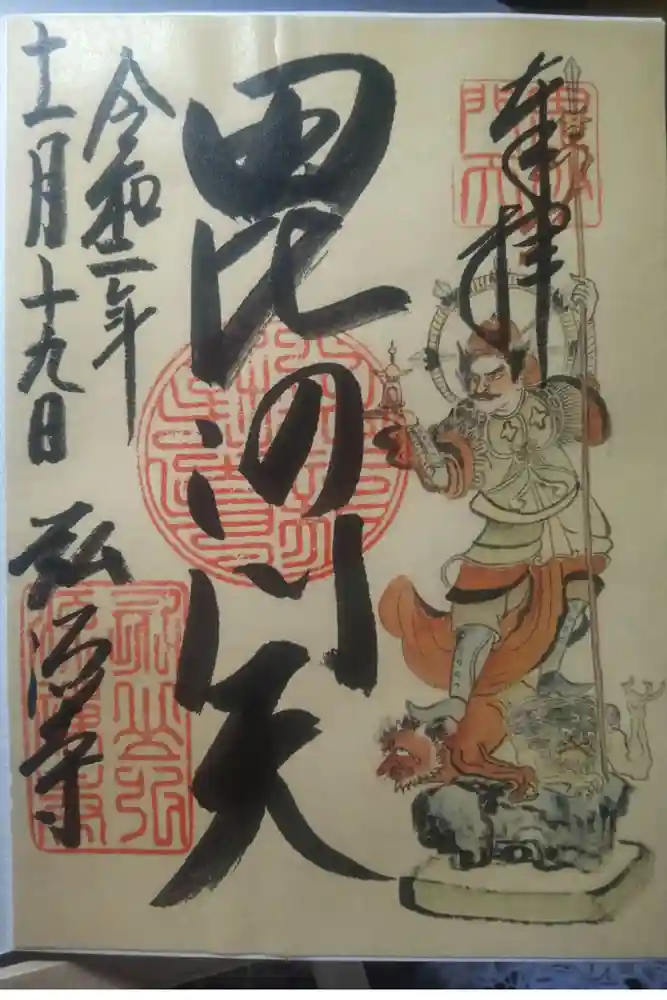 奉拝
毘沙門天
令和二年
十一月十九日
弘源寺